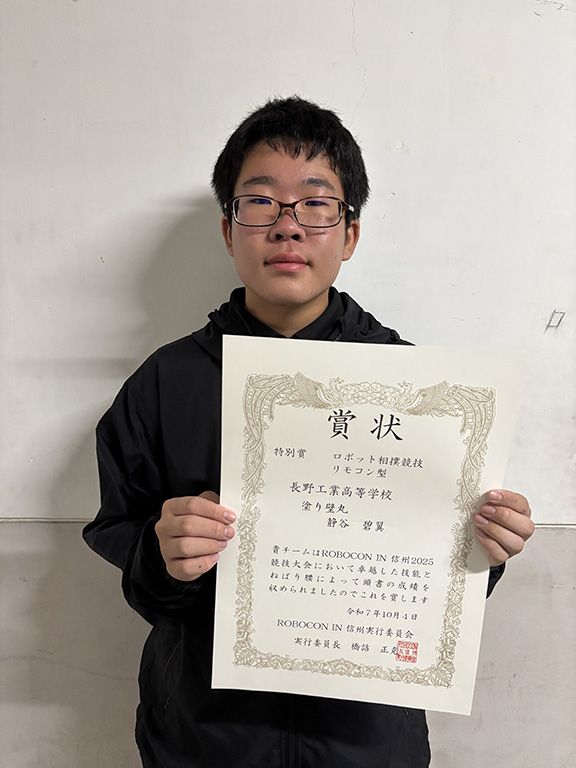 賞状
特別賞 ロボット相撲競技
リモコン型
長野工業高等学校
塗り壁丸
静谷 碧翼
貴チームはROBOCON IN 信州2025
競技大会において卓越した技能と
ねばり腰によって頭書の成績を
収められましたのでこれを賞します
令和7年10月4日
ROBOCON IN 信州実行委員会
実行委員長 橋詰 正寛